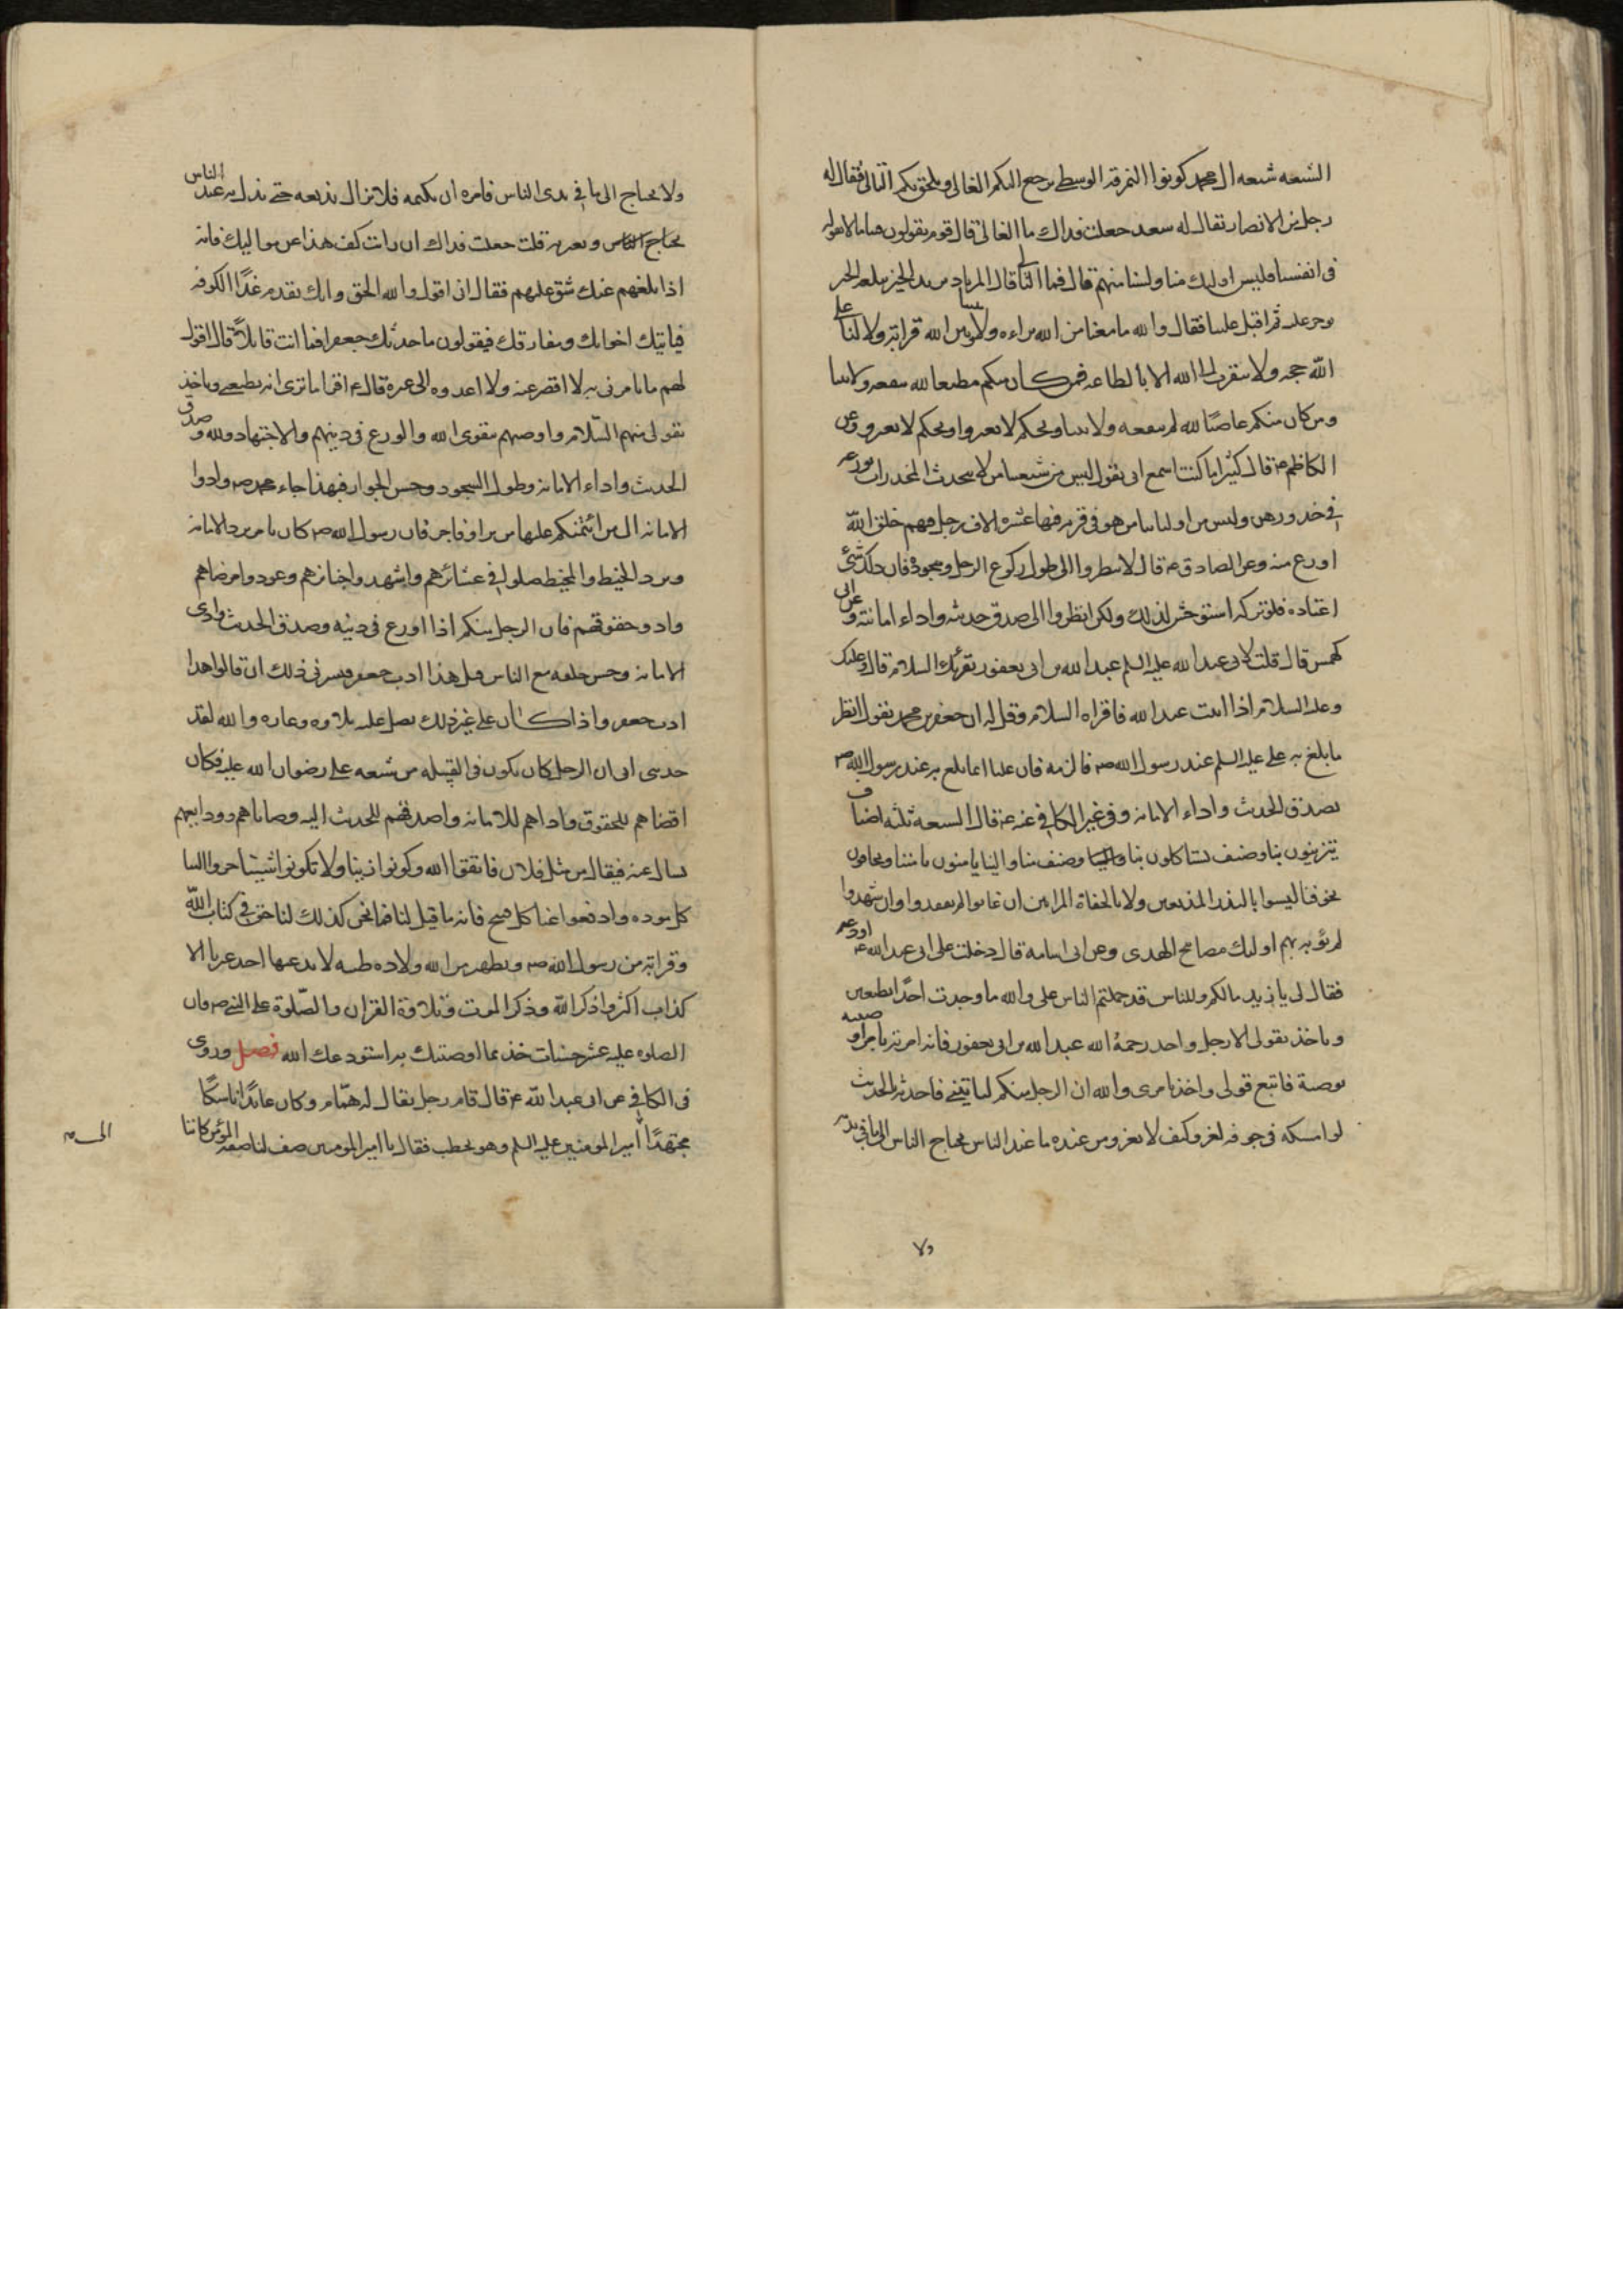 الشیعه شیعه ال محمد کونوا النمرقه الوسطی یرجع الیکم الغالی و یلحق بکم التالی فقال له
رجل من الانصار یقال له سعد جعلت فداك ما الغالی قال قوم یقولون فینا ما لا نقوله
فی انفسنا فلیس اولیك منا ولسنا منهم قال فما التالی قال المرتاد یرید الخیر یبلغه الخیر
یوجر علیه ثم اقبل علینا فقال والله ما معنا من الله براءه ولا بیننا وبین الله قرابة ولا لنا علی
الله حجه ولا یتقرب الی الله الا بالطاعه فمن کان منکم مطیعا لله تنفعه ولایتنا
ومن کان منکم عاصیًا لله لم تنفعه ولایتنا ویحکم لا تغتروا ویحکم لا تغتروا وعن
الکاظم ع قال کثیرا ما کنت اسمع ابی یقول لیس من شیعتنا من لا یتحدث المخدرات بورعه
فی خدورهن ولیس من اولیائنا من هو فی قریه فیها عشره الاف رجل فیهم خلق الله
اورع منه وعن الصادق ع قال لا تنظروا الی طول رکوع الرجل وسجوده فان ذلك شئ
اعتاده فلو ترکه استوحش لذلك ولکن انظروا الی صدق حدیثه واداء امانته وعن ابی
کهمس قال قلت لابی عبد الله علیه السلم عبد الله بن ابی یعفور یقرئك السلام قال وعلیك
وعلیه السلام اذا اتیت عبد الله فاقراه السلام وقل له ان جعفر بن محمد یقول انظر
ما بلغ به علی علیه السلم عند رسول الله ص فالزمه فان علیا انما بلغ به عند رسول الله ص
بصدق الحدیث واداء الامانة وفی غیر الکافی عنه ع قال الشیعه ثلثه اصناف
یتزینون بنا وصنف یستاکلون بنا وصنف منا والینا یامنون بامننا ویخافون
بخوفنا لیسوا بالبذر المذیعین ولا بالجفاة المرائین ان غابوا لم یفقدوا وان شهدوا
لم یؤبه بهم اولیك مصابیح الهدی وعن ابی اسامه قال دخلت علی ابی عبد الله ع اودعه
فقال لی یا زید مالکم وللناس قد حملتم الناس علی والله ما وجدت احدًا یطیعنی
ویاخذ بقولی الا رجل واحد رحمهُ الله عبد الله بن ابی یعفور فانه امرته بامر او صیته
بوصیة فاتبع قولی واخذ بامری والله ان الرجل منکم لیاتینی فاحدثه بالحدیث
لو امسکه فی جوفه لعز وکیف لا یعز ومن عنده ما عند الناس یحتاج الناس الی ما فی یدیه
ولا
ولا یحتاج الی ما فی یدی الناس فامره ان یکتمه فلا یزال یذیعه حتی یذل به عند الناس
یحتاج الناس ویعیر به قلت جعلت فداك ان رایت کف هذا عن موالیك فانه
اذا بلغهم عنك شق علیهم فقال انی اقول والله الحق وانك تقدم غدًا الکوفه
فیاتیك اخوانك ومعارفك فیقولون ما حدثك جعفر فما انت قائلا قال اقول
لهم ما تامرنی به لا اقصر عنه ولا اعدوه الی غیره قال ع اقرا من تری انه یطیعنی ویاخذ
بقولی منهم السّلام واوصهم بتقوی الله والورع فی دینهم والاجتهاد لله وصدق
الحدیث واداء الامانه وطول السجود وحسن الجوار فبهذا جاء محمد ص وادوا
الامانه الی من ائتمنکم علیها من بر او فاجر فان رسول الله ص کان یامر برد الامانه
وبرد الخیط والمخیط صلوا فی عشائرهم واشهدوا جنائزهم وعودوا مرضاهم
وادوا حقوقهم فان الرجل منکم اذا اورع فی دینه وصدق الحدیث وادی
الامانه وحسن خلقه مع الناس قیل هذا ادب جعفر فیسرنی ذلك ان قالوا هذا
ادب جعفر واذا کان علی غیر ذلك دخل علیه بلاءه وعاره والله لقد
حدثنی ابی ان الرجل کان یکون فی القبیله من شیعه علی رضوان الله علیه فکان
اقضاهم للحقوق واداهم للامانه واصدقهم للحدیث الیه وصایاهم وودایعهم
یسال عنه فیقال من مثل فلان فاتقوا الله وکونوا زینا ولا تکونوا شینا جروا الینا
کل موده وادفعوا عنا کل قبیح فانه ما قیل لنا فما نحن کذلك لنا حق فی کتاب الله
وقرابة من رسول الله ص وتطهیر من الله وولاده طیبه لا یدعیها احد غیرنا الا
کذاب اکثروا ذکر الله وذکر الموت وتلاوة القران والصّلوة علی النبی ص فان
الصلوه علیه عشر حسنات خذ بما اوصیتك به استودعك الله فصل وروی
فی الکافی عن ابی عبد الله ع قال قام رجل یقال له همّام وکان عابدًا ناسکًا
مجتهدًا الی امیر المومنین علیه السلم وهو یخطب فقال یا امیر المومنین صف لنا صفة المؤمن کاننا